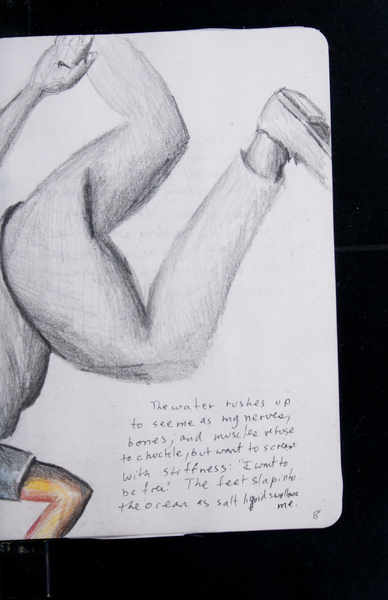 The water rushes up
to see me as my nerves,
bones, and muscles refuse
to chuckle, but want to scream
with stiffness: "I want to
be free." The feet slap into
the ocean as salt liquid swallows
me.
8